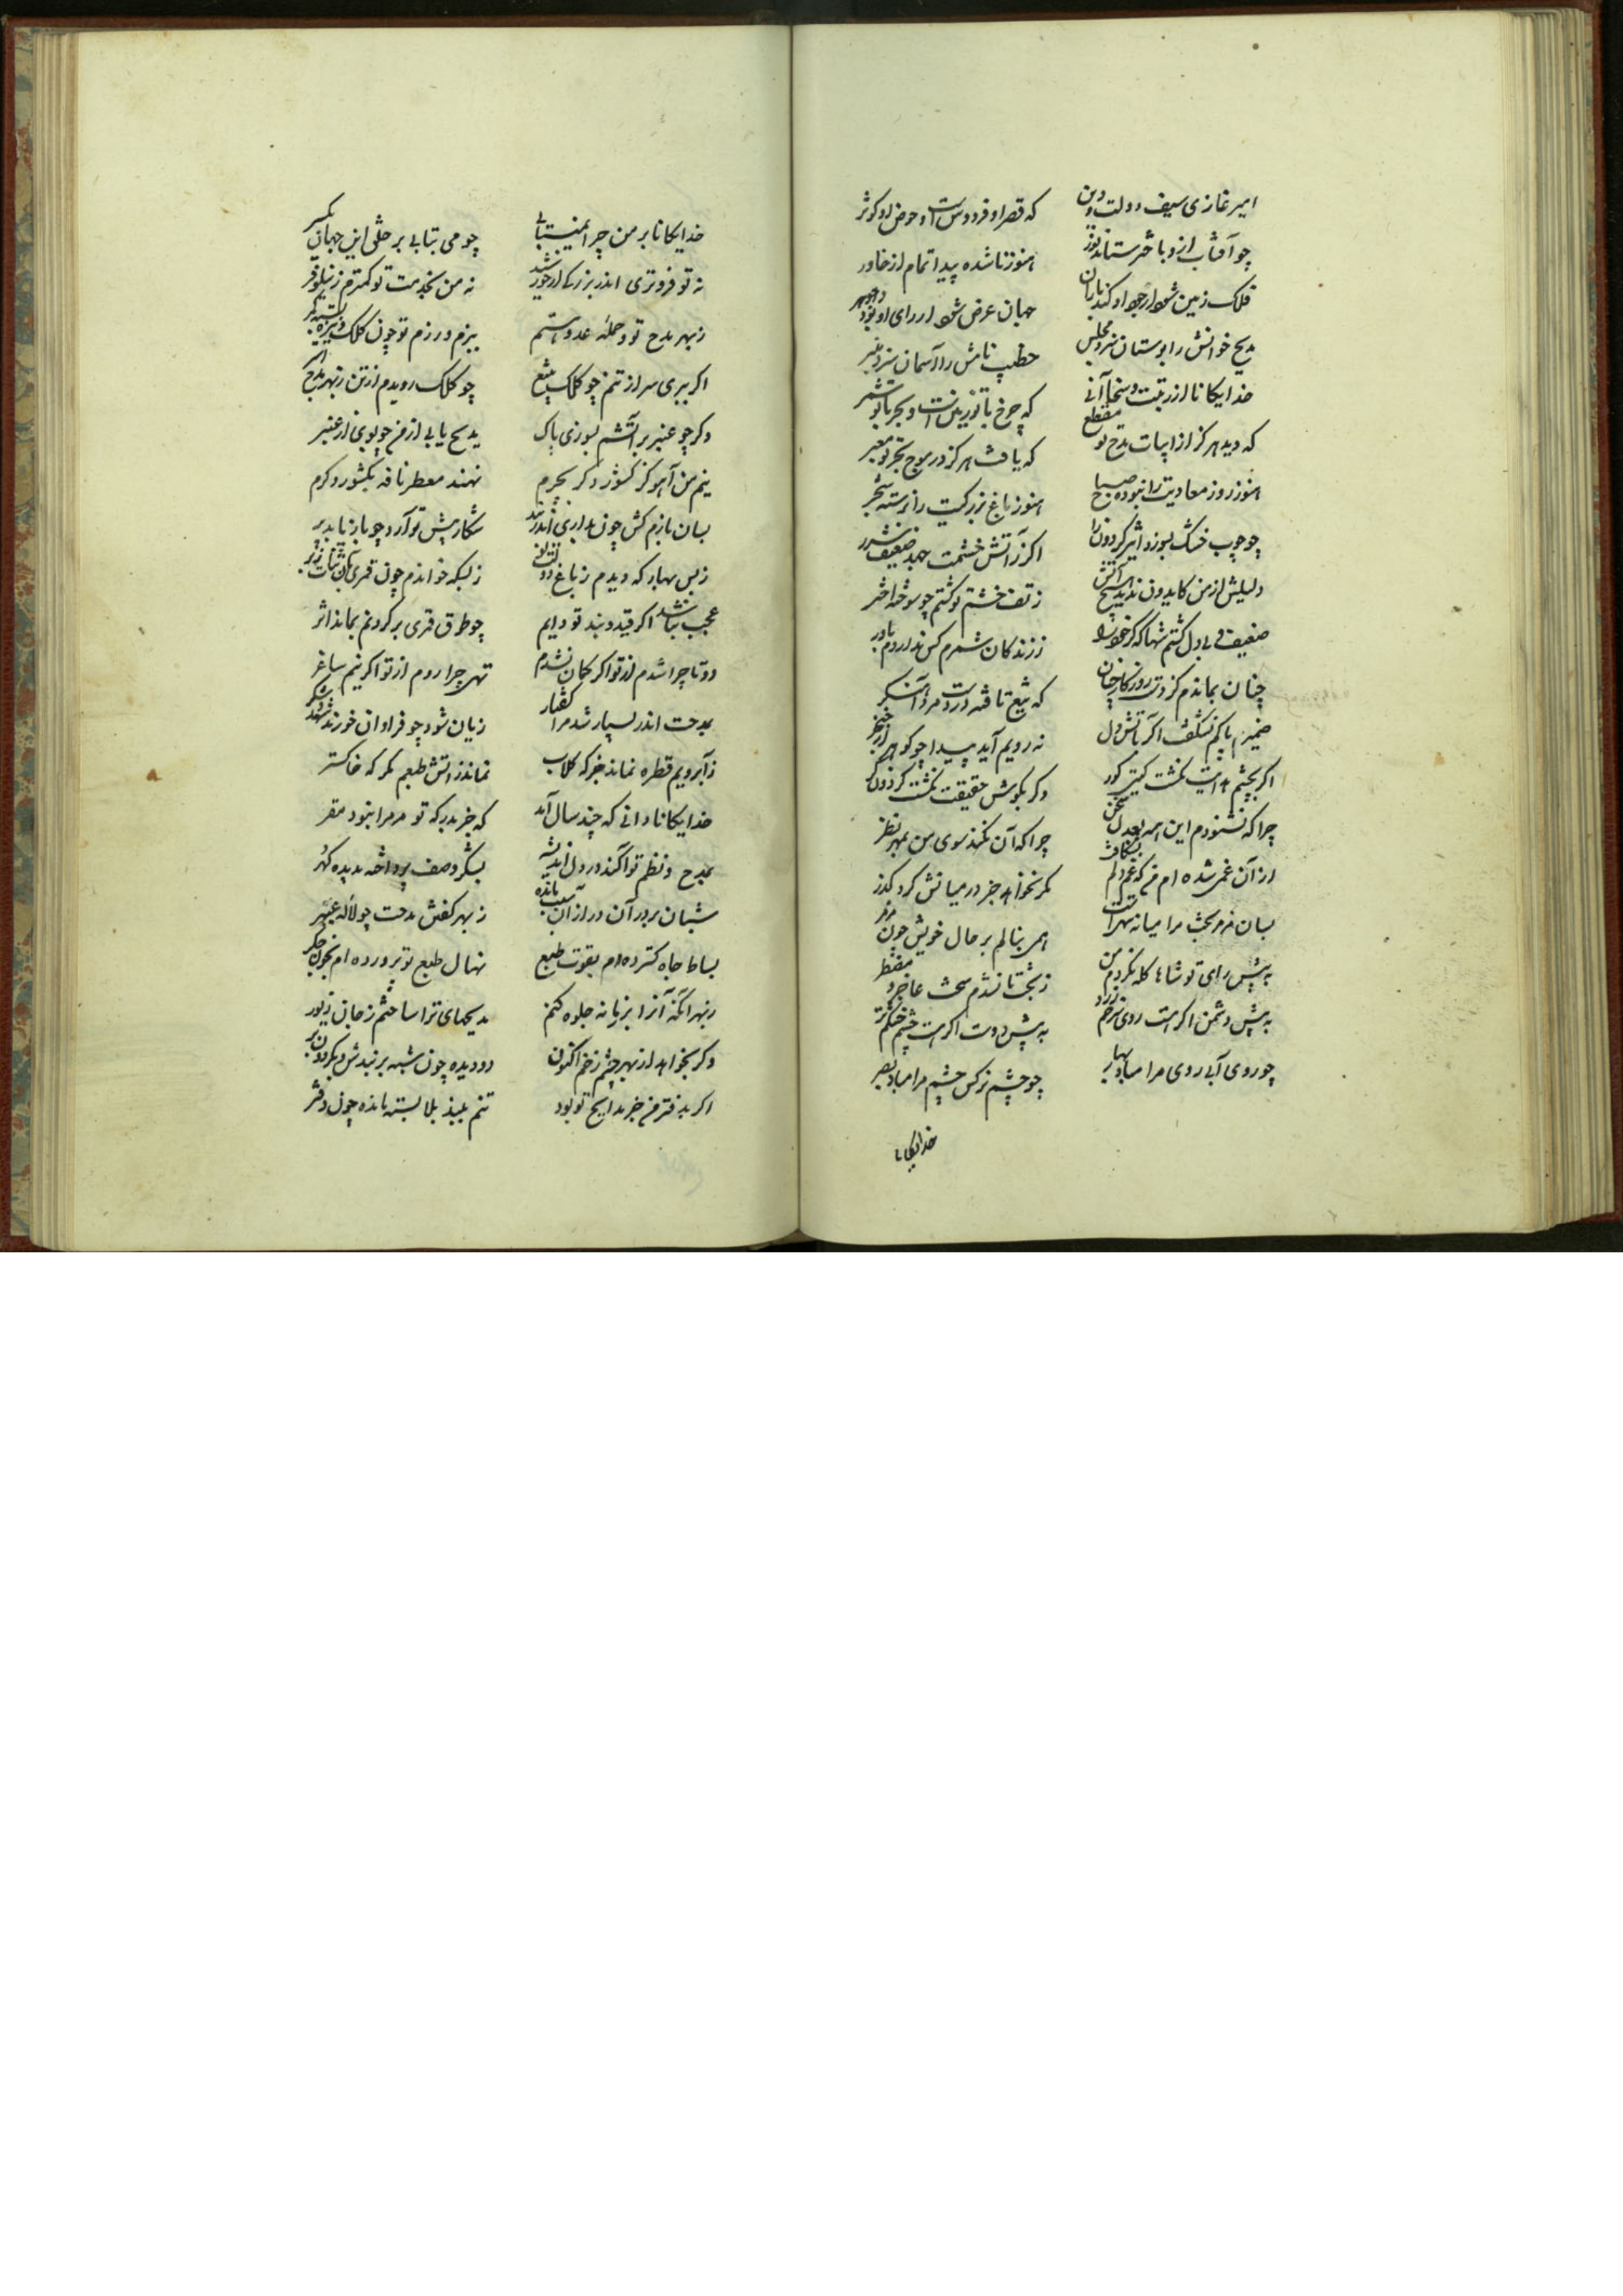 امیر غازی سیف دولت و دین که قصر او فردوس است و حوض او کوثر
چو آفتاب ازو باختر ستاند نور هنوز ناشده پیدا تمام از خاور
فلک زمین شود ار جود او کند باران جهان عرض شود ار رای او بود جوهر
مدیح خوانش را بوستان سزد مجلس خطیب نامش را آسمان سزد منبر
خدایکانا از رتبت و سخا آنی که چرخ با تو زمین است و بحر با تو شمر
که دید هرکز از ابیات مدح تو مقطع که یافت هرکز در موج بحر تو معبر
هنوز روز معادیت را نبوده صباح هنوز باغ بزرکیت را نرسته شجر
چو چوب خشک بسوزد اثیر کردون را اکر ز آتش خشمت جهد ضعیف شرر
دلیلش از من کایدون ندیده هیچ آتش ز تف خشم تو کشتم چو سوخته اخکر
ضعیف و بی دل کشتم شها که کر خود را ز زندکان شمرم کس ندارد م باور
چنان بماندم کز دست روزکار چنان که تیغ تافته در دست مرد آهنکر
ضمیر پاکم نشکفت اکر به آتش دل ز رویم آید پیدا چو کوهر از خنجر
اکر بچشم هدایت نکشت کیتی کور وکر بکوش حقیقت نکشت کردون کر
چرا که نشنودم این همه بعدل سخن چرا که آن نکند سوی من بمهر نظر
از آن غمی شده ام من که غم دلم بشکافت مکر نخواهد جز در میانش کرد کذر
بسان مزمر بخت مرا میانه تهی است همی بنالم بر حال خویش چون مزمر
به پیش رای تو شاها کله نکردم من ز بخت تا نشدم سخت عاجز و مضطر
به پیش دشمن اکر هست روی سرخم زرد به پیش دوست اکر هست چشم خشکم تر
چو روی آبی روی مرا مباد بها چو چشم نرکس چشم مرا مباد بصر
خدایکانا
خدایکانا بر من چرا نمی تابی چو می بتابی بر خلق این جهان یکسر
نه تو فروتری اندر بزرکی از خورشید نه من بخدمت تو کمترم ز نیلوفر
ز بهر مدح تو و حمله عدو هستم ببزم و رزم تو چون کلک و نیزه بسته کمر
اکر ببری سر از تنم چو کلک بتیغ چو کلک رویدم از تن ز بهر مدح تو سر
وکر چو عنبر بر آتشم بسوزی پاک مدیح یابی از من چو بوی از عنبر
نیم من آهو کز کشور دکر بچرم نهند معطر نافه بکشور دکرم
بسان بازم کش چون بداری اندر بند شکار پیش تو آرد چو باز یابد پر
ز بس بهار که دیدم ز باغ دولت تو ز بسکه خواندم چون قمری آن ثنات ز بر
عجب نباشد اکر قید و بند تو دایم چو طوق قمری بر کردنم بماند اثر
دوتا چرا شدم از تو اکر کمان نشدم تهی چرا روم از تو اکر نیم ساغر
بمدحت اندر بسیار شد مرا کفتار زیان شود چو فراوان خورند شهد و شکر
ز آب رویم قطره نماند جز که کلاب نماند ز آتش طبعم مکر که خاکستر
خدایکانا دانی که چند سال آمد که جز بدرکه تو مر مرا نبود مقر
بمدح و نظم تو آکنده در دل اندیشه بشکر و وصف تو پرداخته بدیده کهر
شبان بروز آن در از آن سبب مانده ز بهر کفتن مدحت چو لاله عبهر
بساط جاه کسترده ام بقوت طبع نهال طبع تو پرورده ام بخون جکر
ز بهر آنکه آنرا بزمانه جلوه کنم مدیحهای ترا ساختم ز جان زیور
وکر بخواهد از بهر چشم زخم اکنون دو دیده چون شبه بربندمش بکردن بر
اکر بدفتر من جز مدایح تو بود تنم ببند بلا بسته مانده چون دفتر